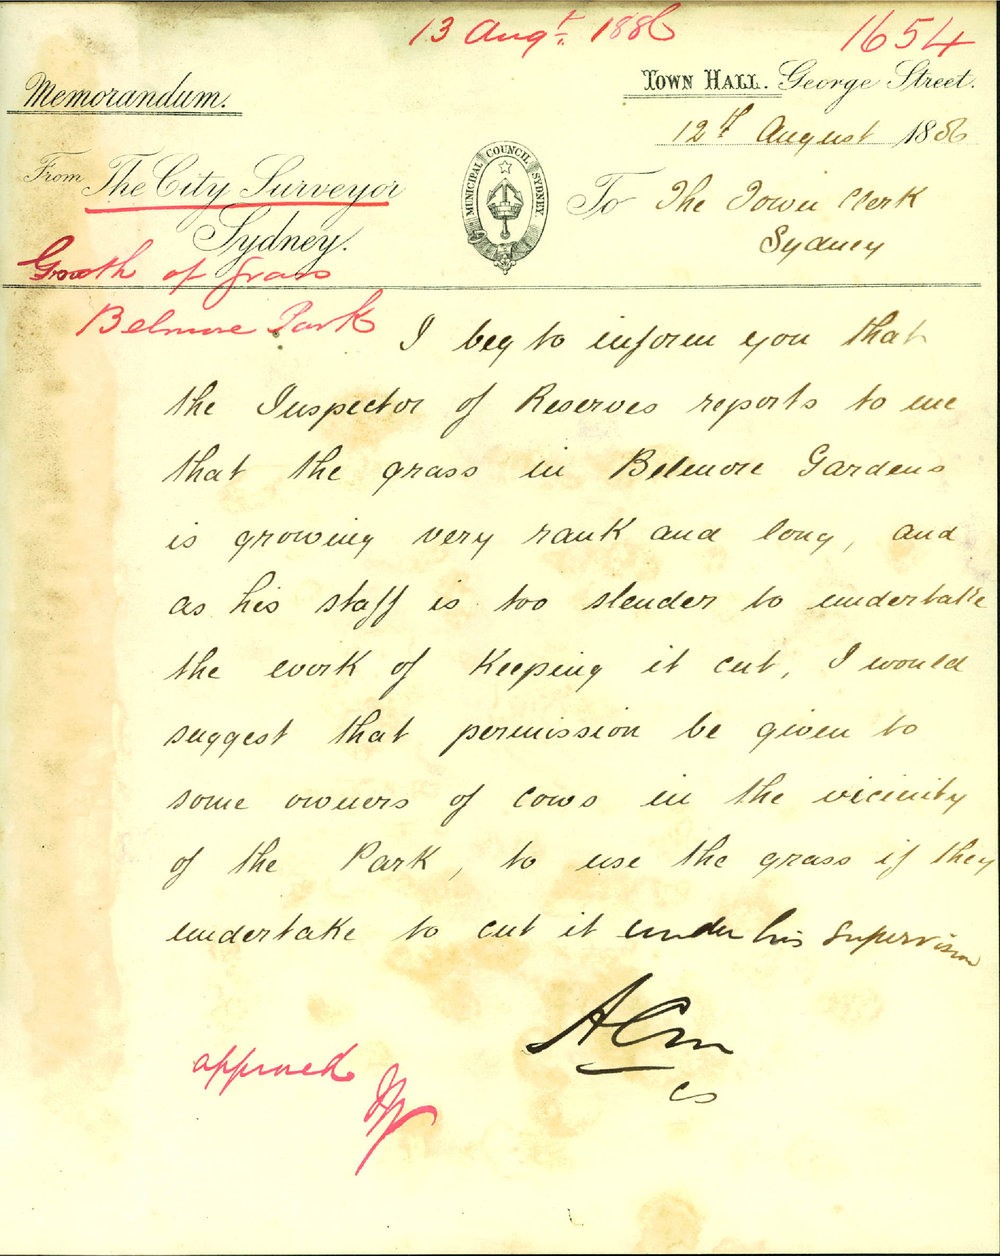 13 Augt. 1886
1654
Memorandum.
Town Hall. George Street.
12th August 1886
From The City Surveyor
Sydney.
MUNICIPAL COUNCIL SYDNEY.
To The Town Clerk
Sydney
Growth of Grass
Belmore Park
I beg to inform you that
the Inspector of Reserves reports to me
that the grass in Belmore Gardens
is growing very rank and long, and
as his staff is too slender to undertake
the work of keeping it cut, I would
suggest that permission be given to
some owners of cows in the vicinity
of the Park, to use the grass if they
undertake to cut it under his supervision
CS
approved